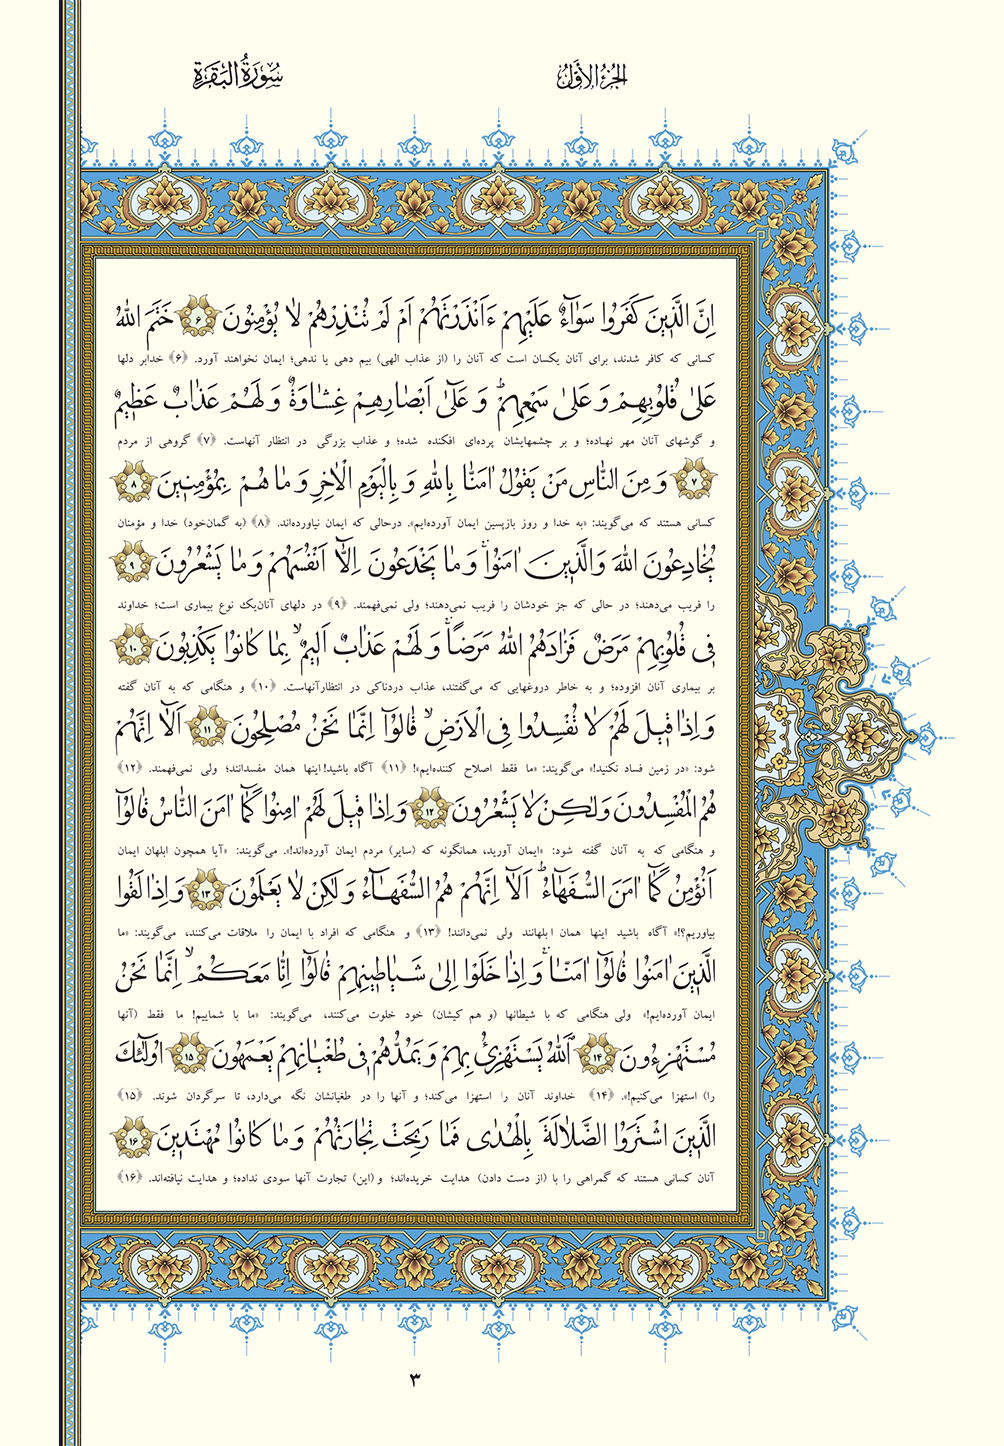 الجزء الأول
سورة البقرة
اِنَّ الَّذينَ كَفَرُوا سَوٰاءٌ عَلَيْهِمْ ءَاَنْذَرْتَهُمْ اَمْ لَمْ تُنْذِرْهُمْ لٰا يُؤْمِنُونَ ﴿۶﴾ خَتَمَ اللّٰهُ
کسانی که کافر شدند، برای آنان یکسان است که آنان را (از عذاب الهی) بیم دهی یا ندهی؛ ایمان نخواهند آورد. ﴿۶﴾ خدابر دلها
عَلىٰ قُلُوبِهِمْ وَ عَلىٰ سَمْعِهِمْ ۖ وَ عَلىٰٓ اَبْصٰارِهِمْ غِشٰاوَةٌ وَ لَهُمْ عَذٰابٌ عَظيمٌ
و گوشهای آنان مهر نهاده؛ و بر چشمهایشان پرده‌ای افکنده شده؛ و عذاب بزرگی در انتظار آنهاست. ﴿۷﴾ گروهی از مردم
﴿۷﴾ وَ مِنَ النّٰاسِ مَنْ يَقُولُ اٰمَنّٰا بِاللّٰهِ وَ بِالْيَوْمِ الْاٰخِرِ وَ مٰا هُمْ بِمُؤْمِنينَ ﴿۸﴾
کسانی هستند که می‌گویند: «به خدا و روز بازپسین ایمان آورده‌ایم». درحالی که ایمان نیاورده‌اند. ﴿۸﴾ (به گمان‌خود) خدا و مؤمنان
يُخٰادِعُونَ اللّٰهَ وَ الَّذينَ اٰمَنُوا ۚ وَ مٰا يَخْدَعُونَ اِلّٰٓا اَنْفُسَهُمْ وَ مٰا يَشْعُرُونَ ﴿۹﴾
را فریب می‌دهند؛ در حالی که جز خودشان را فریب نمی‌دهند؛ ولی نمی‌فهمند. ﴿۹﴾ در دلهای آنان‌یک نوع بیماری است؛ خداوند
في قُلُوبِهِمْ مَرَضٌ فَزٰادَهُمُ اللّٰهُ مَرَضاً ۚ وَ لَهُمْ عَذٰابٌ اَليمٌ ۙ بِمٰا كٰانُوا يَكْذِبُونَ ﴿۱۰﴾
بر بیماری آنان افزوده؛ و به خاطر دروغهایی که می‌گفتند، عذاب دردناکی در انتظارآنهاست. ﴿۱۰﴾ و هنگامی که به آنان گفته
وَ اِذٰا قيلَ لَهُمْ لٰا تُفْسِدُوا فِي الْاَرْضِ ۙ قٰالُوٓا اِنَّمٰا نَحْنُ مُصْلِحُونَ ﴿۱۱﴾ اَلٰٓا اِنَّهُمْ
شود: «در زمین فساد نکنید!» می‌گویند: «ما فقط اصلاح کننده‌ایم»! ﴿۱۱﴾ آگاه باشید! اینها همان مفسدانند؛ ولی نمی‌فهمند. ﴿۱۲﴾
هُمُ الْمُفْسِدُونَ وَ لٰكِنْ لٰا يَشْعُرُونَ ﴿۱۲﴾ وَ اِذٰا قيلَ لَهُمْ اٰمِنُوا كَمٰٓا اٰمَنَ النّٰاسُ قٰالُوٓا
و هنگامی که به آنان گفته شود: «ایمان آورید، همانگونه که (سایر) مردم ایمان آورده‌اند!»، می‌گویند: «آیا همچون ابلهان ایمان
اَنُؤْمِنُ كَمٰٓا اٰمَنَ السُّفَهٰٓاءُ ۗ اَلٰٓا اِنَّهُمْ هُمُ السُّفَهٰٓاءُ وَ لٰكِنْ لٰا يَعْلَمُونَ ﴿۱۳﴾ وَ اِذٰا لَقُوا
بیاوریم؟!» آگاه باشید اینها همان ابلهانند ولی نمی‌دانند! ﴿۱۳﴾ و هنگامی که افراد با ایمان را ملاقات می‌کنند، می‌گویند: «ما
الَّذينَ اٰمَنُوا قٰالُوٓا اٰمَنّٰا ۚ وَ اِذٰا خَلَوْا اِلىٰ شَيٰاطينِهِمْ قٰالُوٓا اِنّٰا مَعَكُمْ ۙ اِنَّمٰا نَحْنُ
ایمان آورده‌ایم!» ولی هنگامی که با شیطانها (و هم کیشان) خود خلوت می‌کنند، می‌گویند: «ما با شماییم! ما فقط (آنها
مُسْتَهْزِءُونَ ﴿۱۴﴾ اَللّٰهُ يَسْتَهْزِئُ بِهِمْ وَ يَمُدُّهُمْ في طُغْيٰانِهِمْ يَعْمَهُونَ ﴿۱۵﴾ اُولٰٓئِكَ
را) استهزا می‌کنیم!». ﴿۱۴﴾ خداوند آنان را استهزا می‌کند؛ و آنها را در طغیانشان نگه می‌دارد، تا سرگردان شوند. ﴿۱۵﴾
الَّذينَ اشْتَرَوُا الضَّلٰالَةَ بِالْهُدىٰ فَمٰا رَبِحَتْ تِجٰارَتُهُمْ وَ مٰا كٰانُوا مُهْتَدينَ ﴿۱۶﴾
آنان کسانی هستند که گمراهی را با (از دست دادن) هدایت خریده‌اند؛ و (این) تجارت آنها سودی نداده؛ و هدایت نیافته‌اند. ﴿۱۶﴾
۳